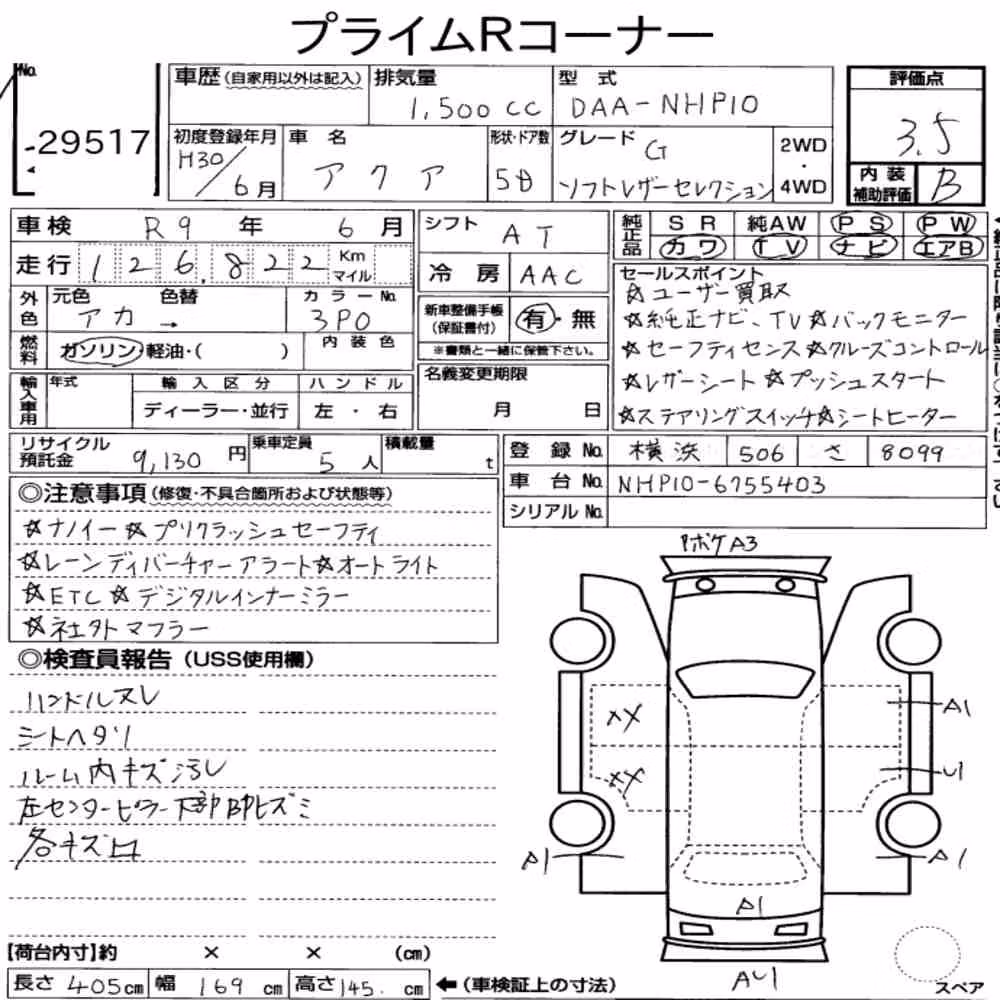 プライムRコーナー
No.
29517
車歴(自家用以外は記入)
排気量
1,500cc
型式
DAA-NHP10
評価点
3.5
内装
補助評価
B
初度登録年月
H30/6月
車名
アクア
形状・ドア数
5D
グレード
G
ソフトレザーセレクション
2WD
・
4WD
車検 R9年 6月
走行 126,822 Km
マイル
シフト
AT
冷房 AAC
純正品
SR 純AW PS PW
カワ TV ナビ エアB
外色
元色 色替
アカ →
カラーNo.
3P0
内装色
燃料
ガソリン・軽油・( )
輸入車用
年式
輸入区分
ディーラー・並行
ハンドル
左・右
新車整備手帳
(保証書付)
有・無
※書類と一緒に保管下さい。
名義変更期限
月 日
セールスポイント
☆ユーザー買取
☆純正ナビ、TV☆バックモニター
☆セーフティセンス☆クルーズコントロール
☆レザーシート ☆プッシュスタート
☆ステアリングスイッチ☆シートヒーター
リサイクル
預託金
9,130円
乗車定員
5人
積載量
t
登録No. 横浜 506 さ 8099
車台No. NHP10-6755403
シリアルNo.
◎注意事項(修復・不具合箇所および状態等)
☆ナノイー☆プリクラッシュセーフティ
☆レーンディパーチャーアラート☆オートライト
☆ETC☆デジタルインナーミラー
☆社外マフラー
◎検査員報告(USS使用欄)
ハンドルスレ
シートヘタリ
ルーム内キズ汚レ
左センターピラー下部凹ヒズミ
各キズ凹
PボケA3
XX
XX
A1
U1
A1
A1
A1
AU1
スペア
【荷台内寸】約 × × (cm)
長さ 405cm 幅 169cm 高さ 145.cm ←(車検証上の寸法)